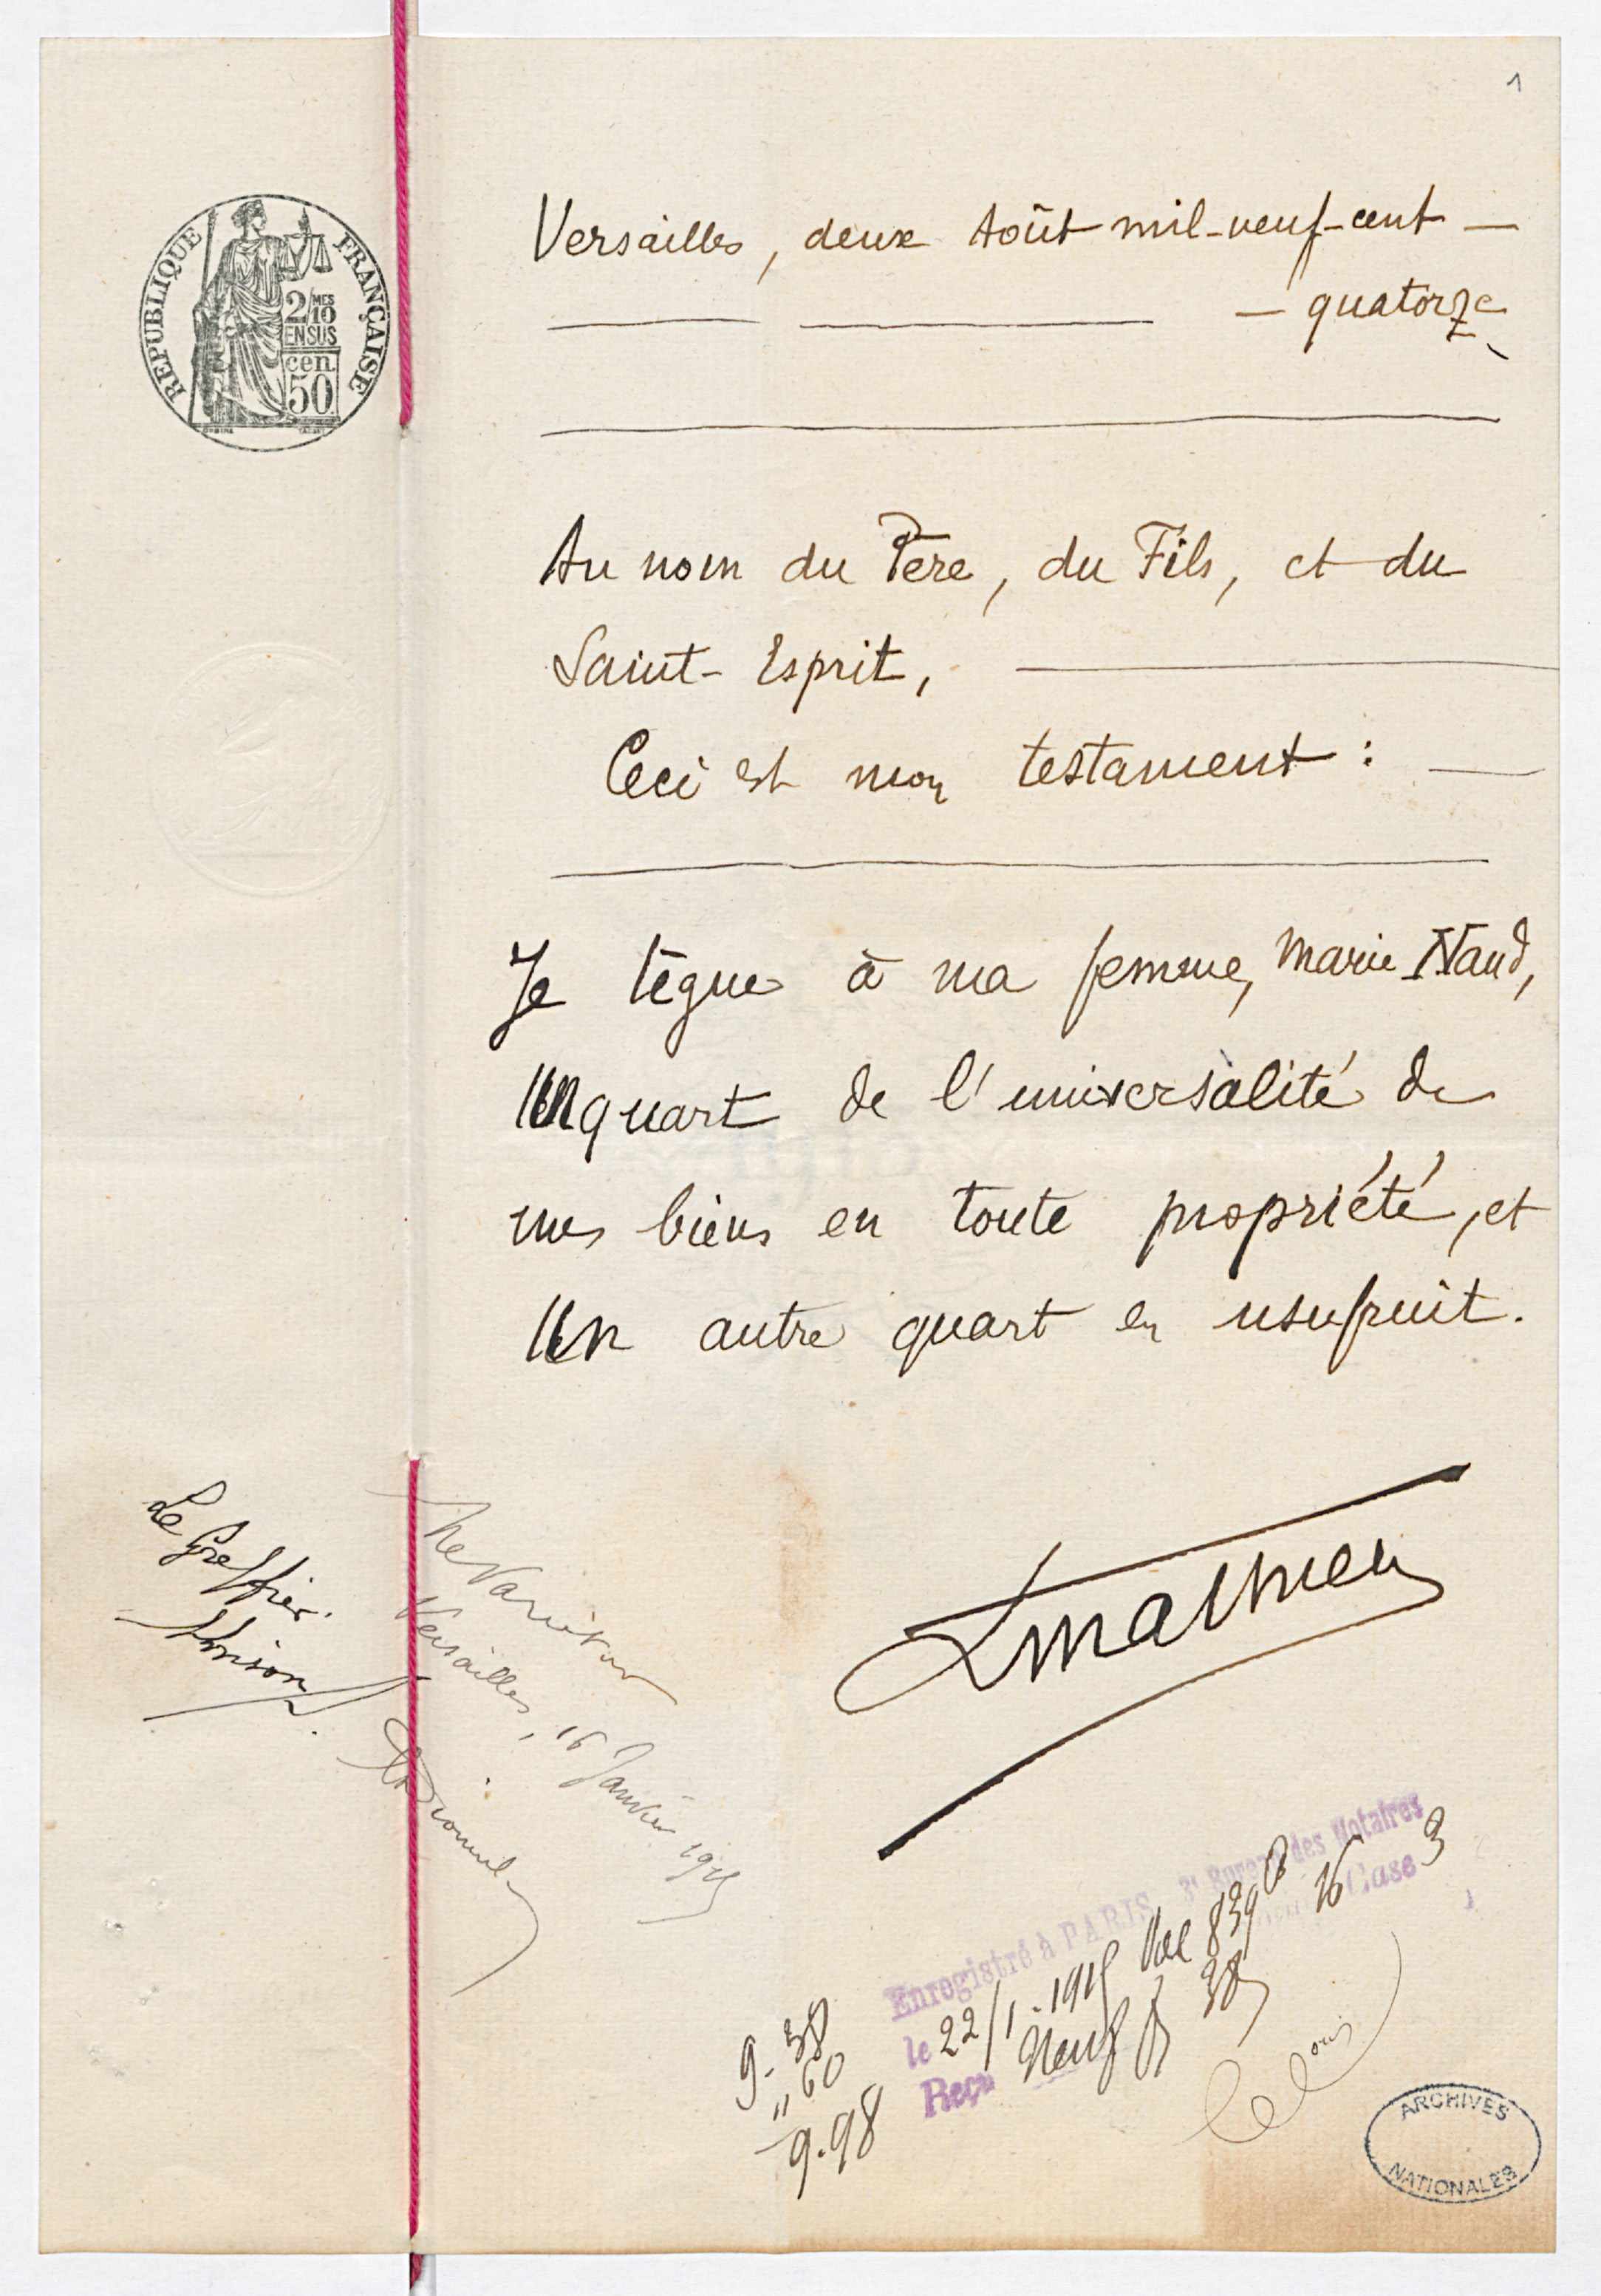 1
REPUBLIQUE FRANÇAISE
2/10 MES
EN SUS
cen.
50
Versailles, deux Août mil-neuf-cent —
— quatorze
Au nom du Père, du Fils, et du
Saint-Esprit,
Ceci est mon testament :
Je lègue à ma femme, Marie Naud,
un quart de l'universalité de
mes biens en toute propriété, et
un autre quart en usufruit.
Le Greffier.
Ne Varietur
Versailles, 16 Janvier 1915
Enregistré à PARIS, 3e Bureau des Notaires
le 22/1-1915 Vol 839 B 16 Case 3
Reçu Neuf f 38
9-38
" 60
9.98
ARCHIVES
NATIONALES